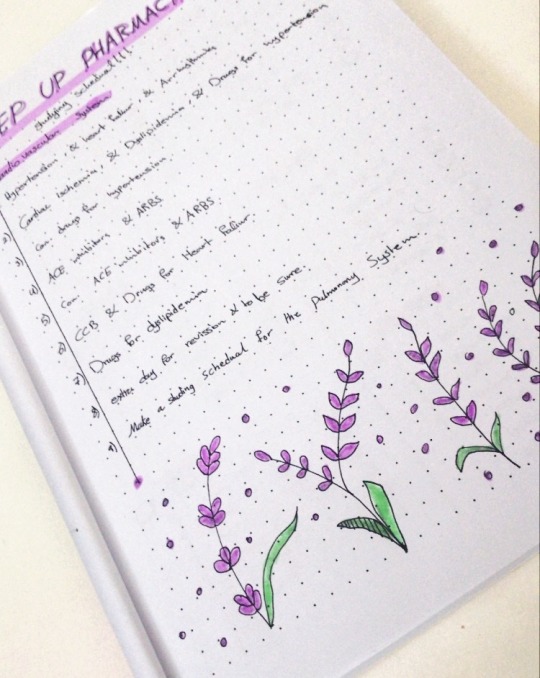 EP UP PHARMAC
studying schedual!!!!
cardiovascular system
Hypertension, & heart failur, & Arrhythmia
2) Cardiac ischemia, & Dyslipidemia, & Drugs for hypertension
3) con. drugs for hypertension
4) ACE inhibitors & ARBS
5) con. ACE inhibitors & ARBS.
6) CCB & Drugs for Heart failur.
7) Drugs for dyslipidemia
8) extra day for revision & to be sure.
9) Make a studing schedual for the Pulmonary System.